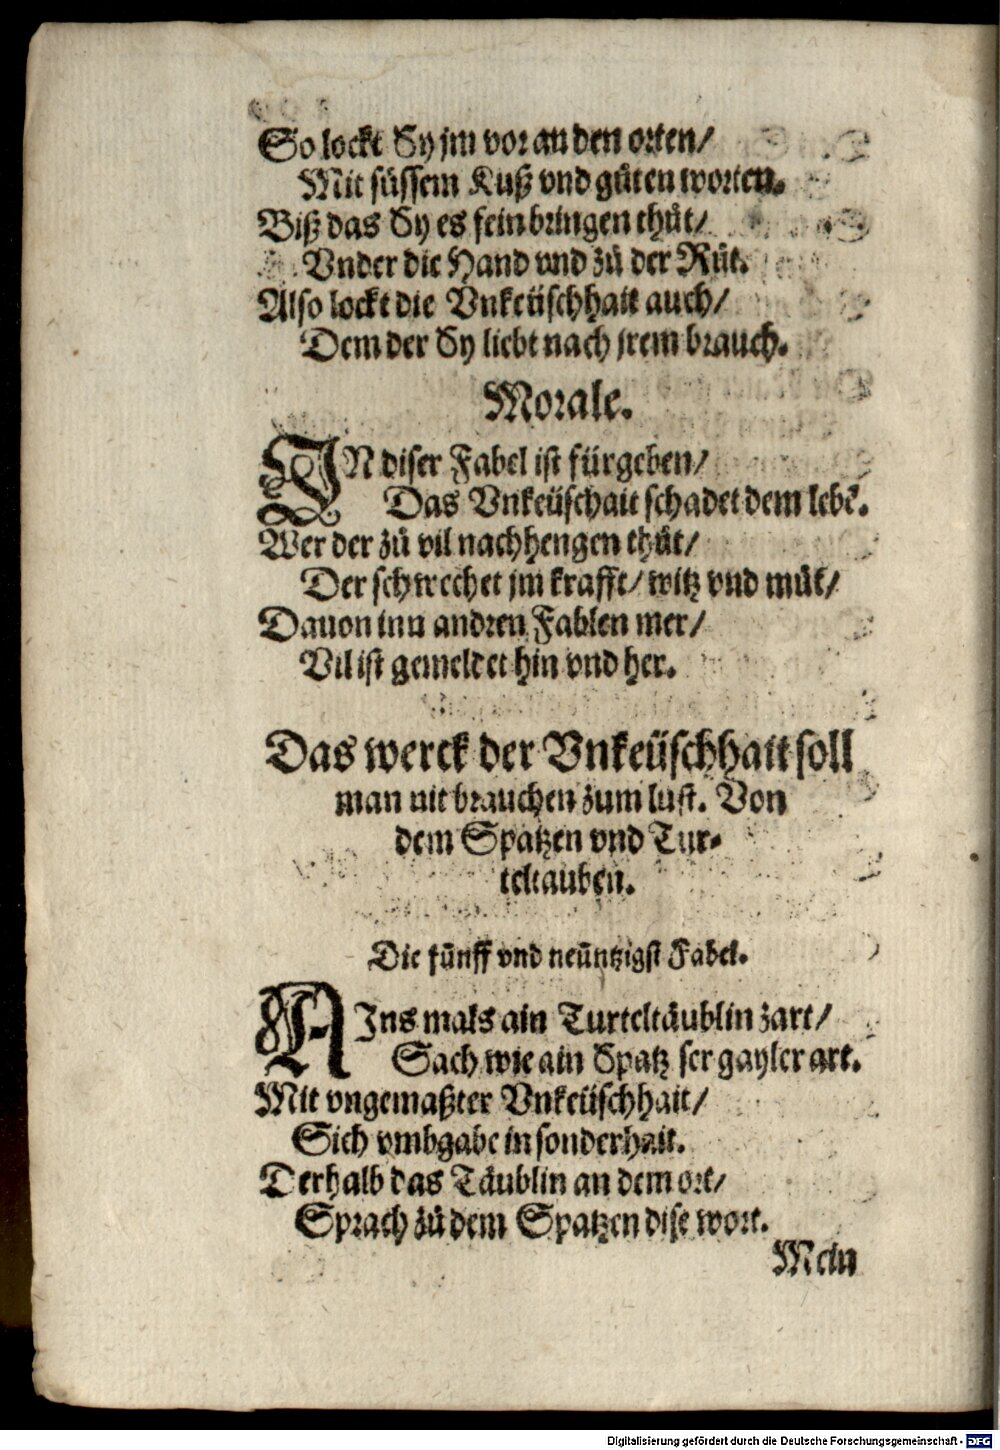 So lockt Sy jm vor an den orten/
Mit süssem Kuß vnd gůten worten.
Biß das Sy es fein bringen thůt/
Vnder die Hand vnd zů der Růt.
Also lockt die Vnkeüschhait auch/
Dem der Sy liebt nach jrem brauch.
Morale.
IN diser Fabel ist fürgeben/
Das Vnkeüschait schadet dem lebē.
Wer der zů vil nachhengen thůt/
Der schwechet jm krafft/ witz vnd můt/
Dauon inn andren Fablen mer/
Vil ist gemeldet hin vnd her.
Das werck der Vnkeüschhait soll
man nit brauchen zum lust. Von
dem Spatzen vnd Tur-
teltauben.
Die fünff vnd neüntzigst Fabel.
AIns mals ain Turteltäublin zart/
Sach wie ain Spatz ser gayler art.
Mit vngemaßter Vnkeüschhait/
Sich vmbgabe in sonderhait.
Derhalb das Täublin an dem ort/
Sprach zů dem Spatzen dise wort.
Mein
Digitalisierung gefördert durch die Deutsche Forschungsgemeinschaft - DFG